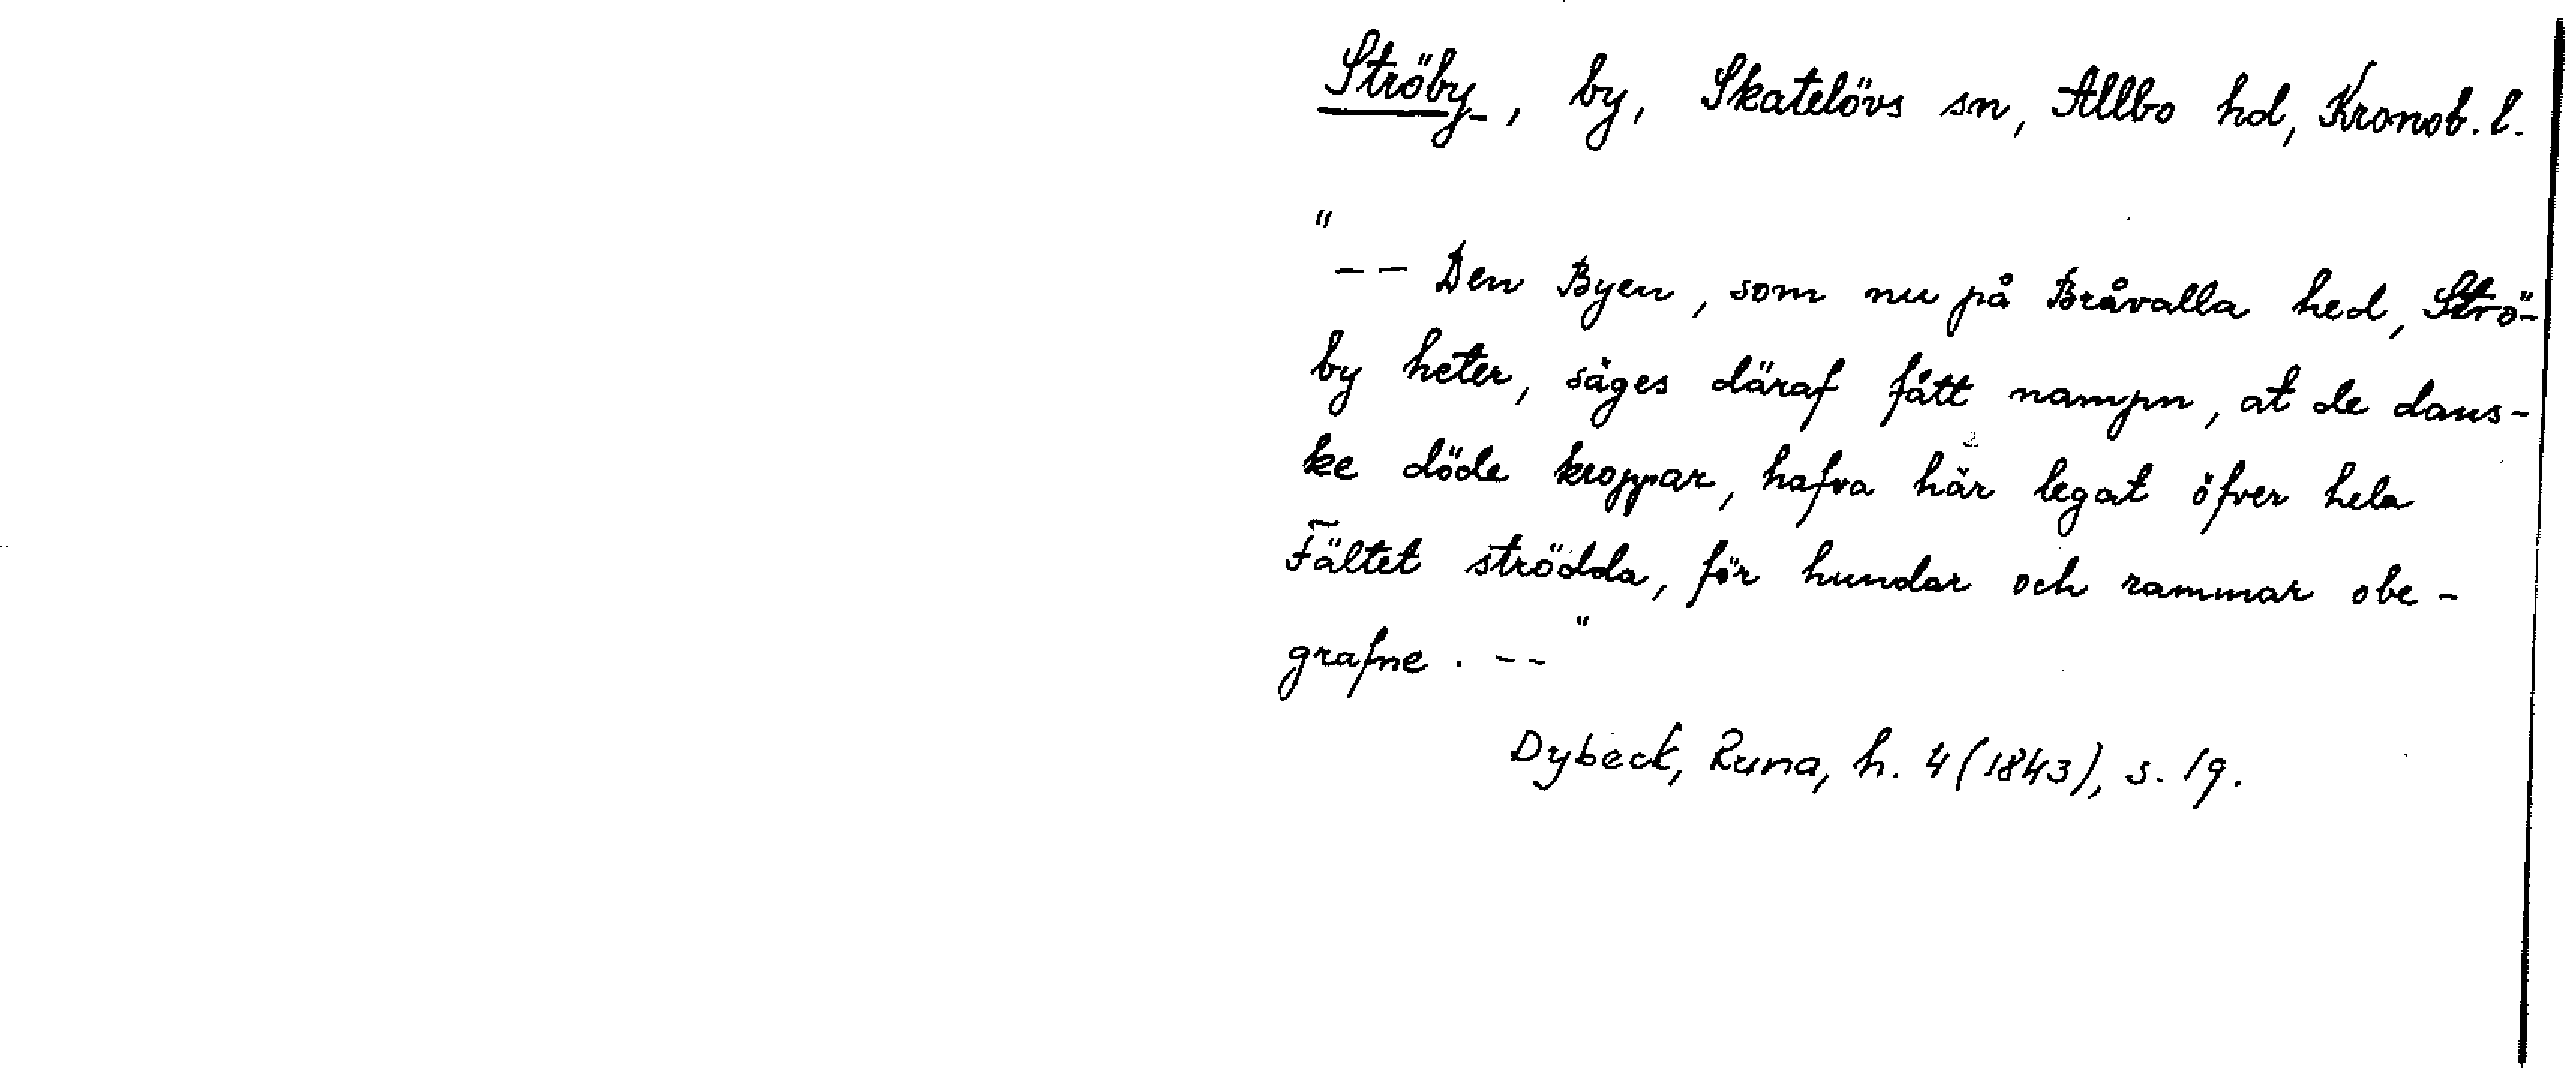 Ströby, by, Skatelövs sn, Allbo hd, Kronob. l.
"-- Den Byen, som nu på Bråvalla hed, Strö-
by heter, säges däraf fått nampn, at de dans-
ke döde kroppar, hafva här legat öfver hela
Fältet strödda, för hundar och rammar obe-
grafne. --"
Dybeck, Runa, h. 4 (1843), s. 19.